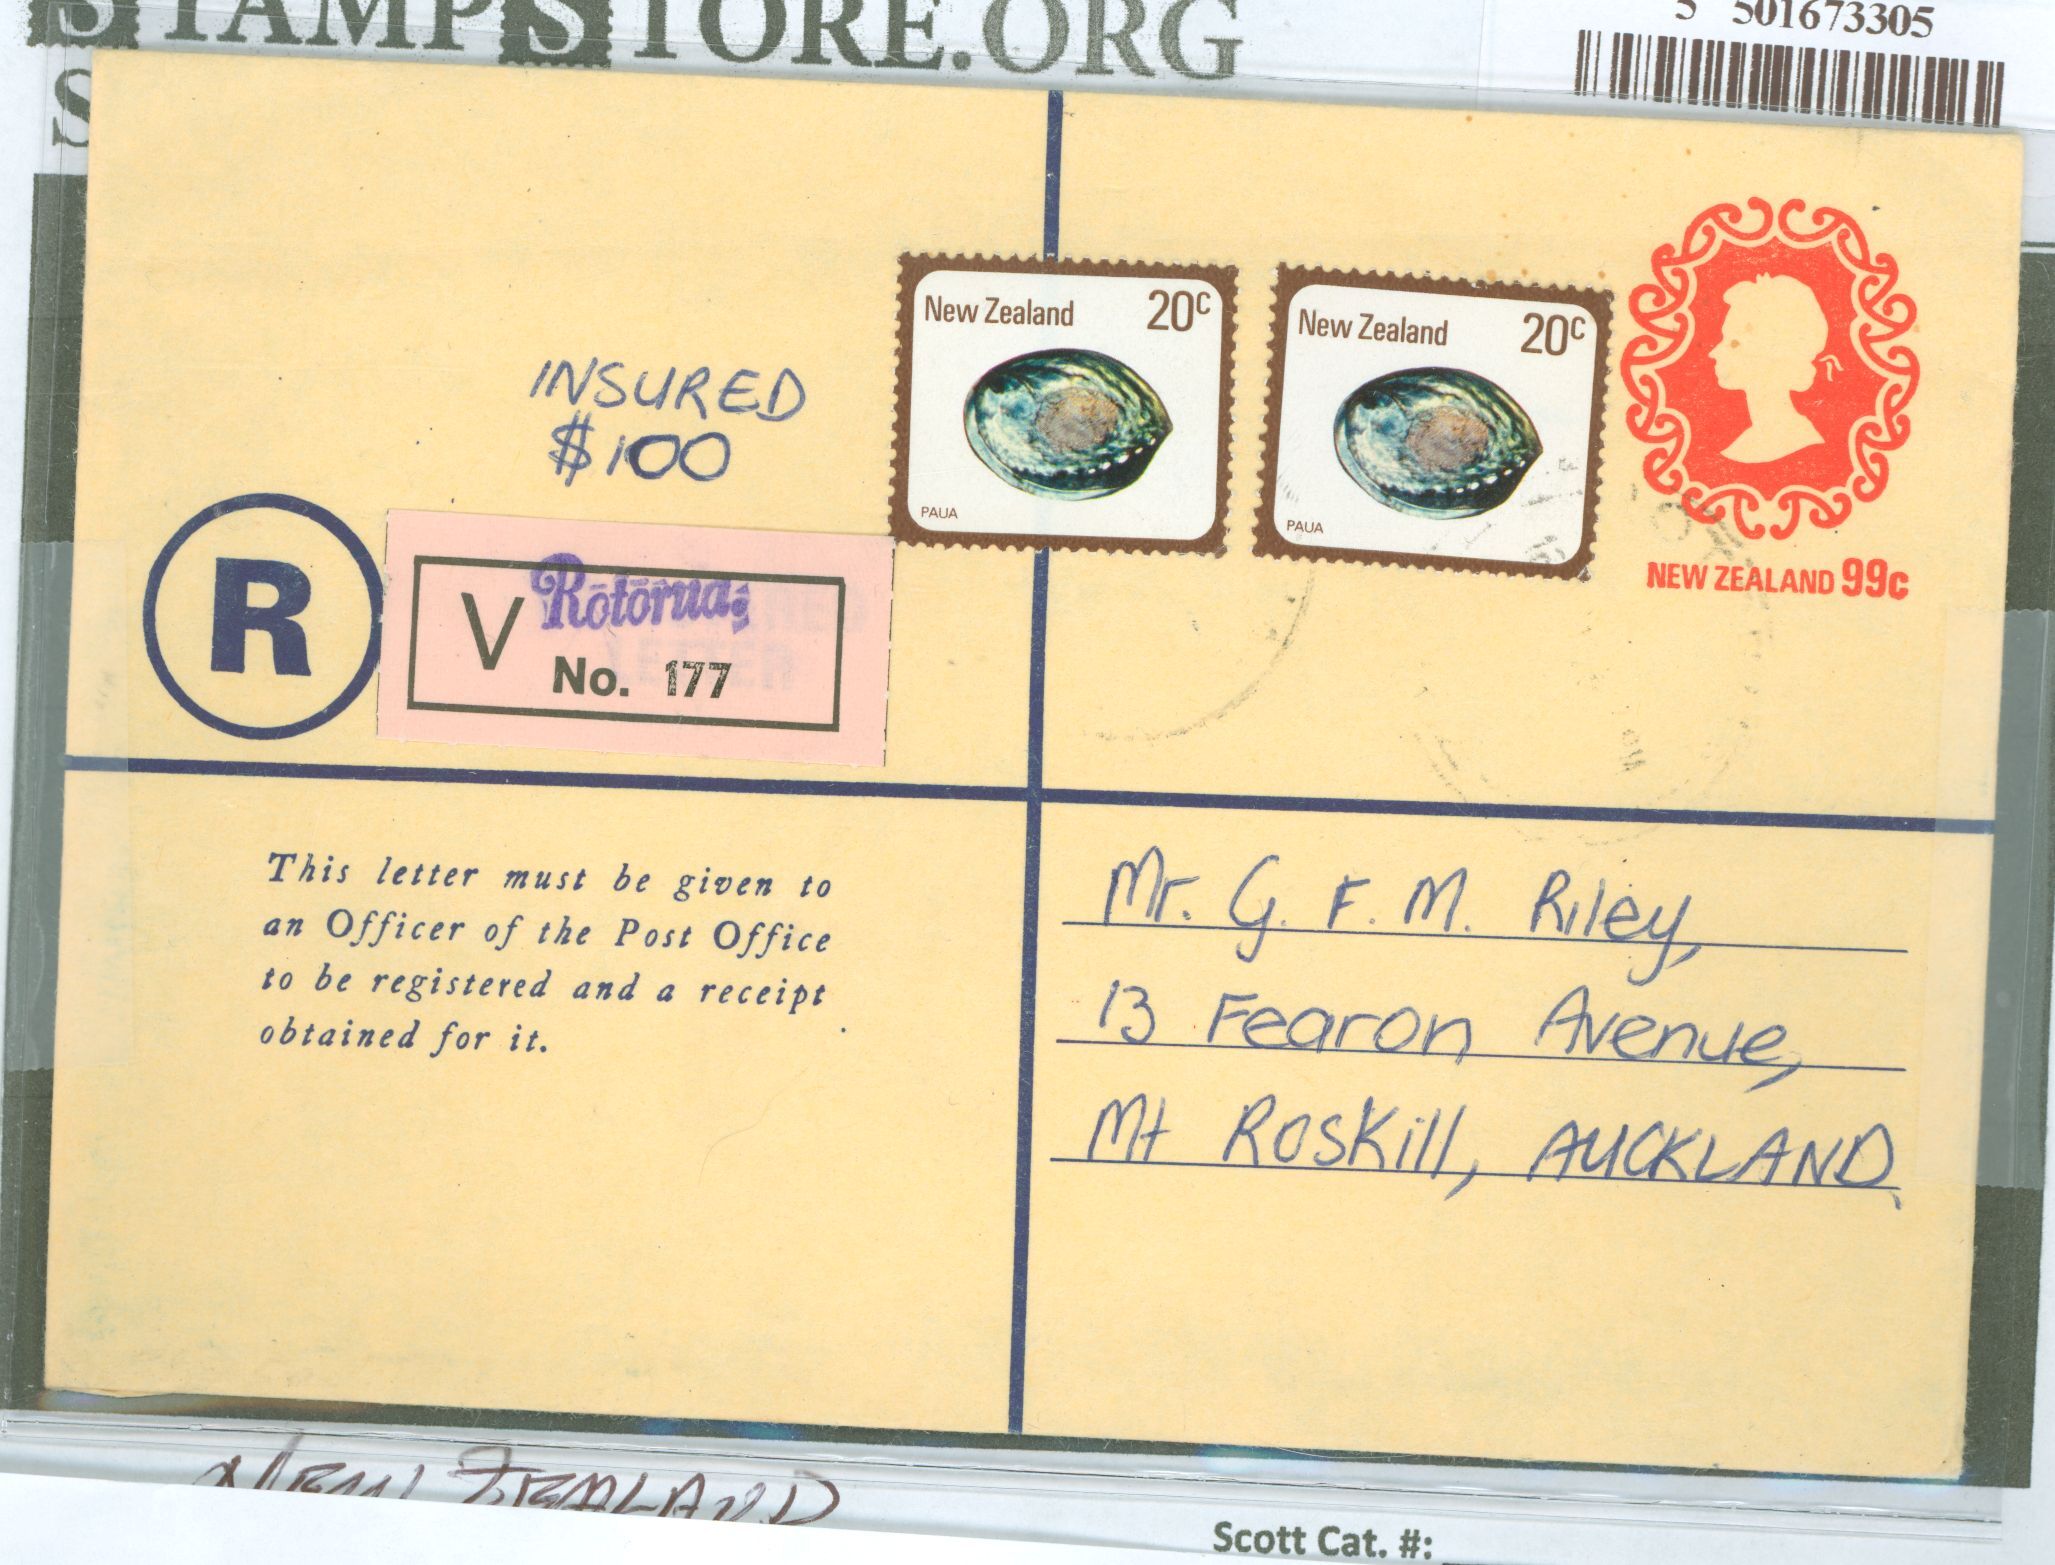 STAMP STORE.ORG
5 501673305
S
New Zealand 20c
PAUA
New Zealand 20c
PAUA
NEW ZEALAND 99c
INSURED
$100
R
V Rotorua.
No. 177
This letter must be given to
an Officer of the Post Office
to be registered and a receipt
obtained for it.
Mr. G. F. M. Riley,
13 Fearon Avenue,
Mt Roskill, AUCKLAND.
NEW ZEALAND
Scott Cat. #: